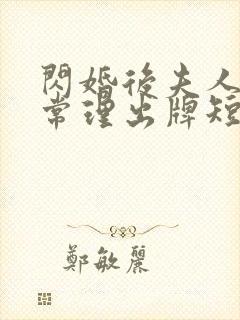 閃婚後夫人
常理出牌短
鄭敏麗